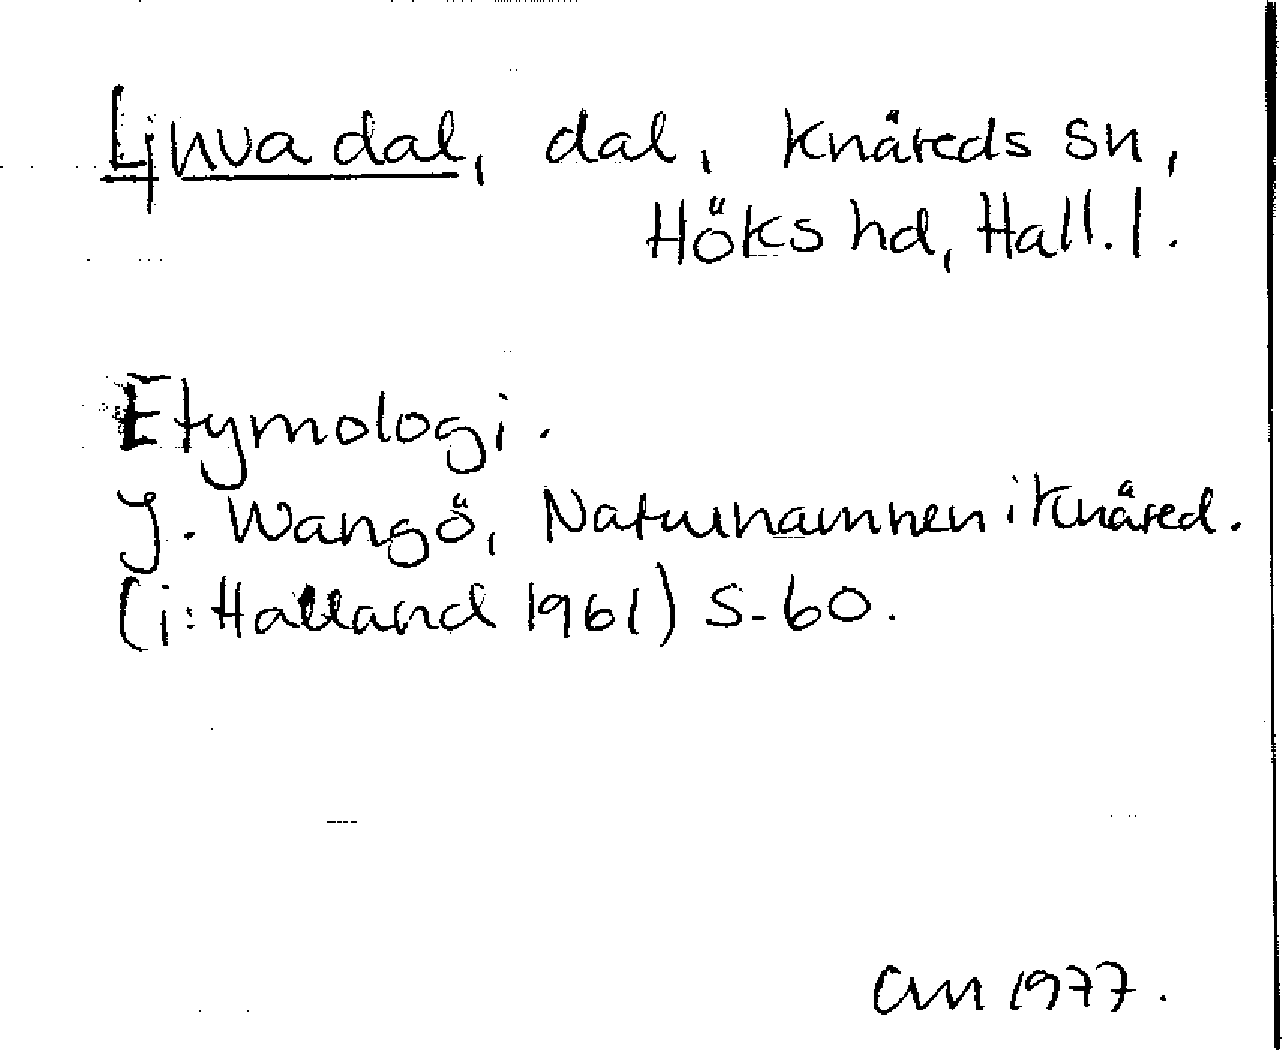 Ljnva dal, dal, Knäreds sn,
Höks hd, Hall. l.
Etymologi.
J. Wangö, Naturnamnen i Knäred.
(i: Halland 1961) s. 60.
CM 1977.